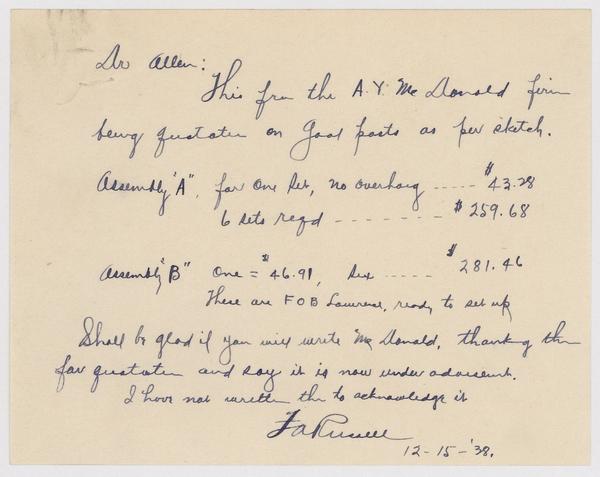 Dr Allen:
This from the A.Y. Mc Donald firm
being quotation on Goal posts as per sketch.
Assembly "A", for one set, no overhang ----- $43.28
6 sets reqd - - - - - - - - $259.68
Assembly "B" One = $46.91, Six ----- $281.46
These are FOB Lawrence, ready to set up
Shall be glad if you will write Mc Donald, thanking them
for quotation and say it is now under advisement.
I have not written them to acknowledge it
F A Russell
12-15-'38.